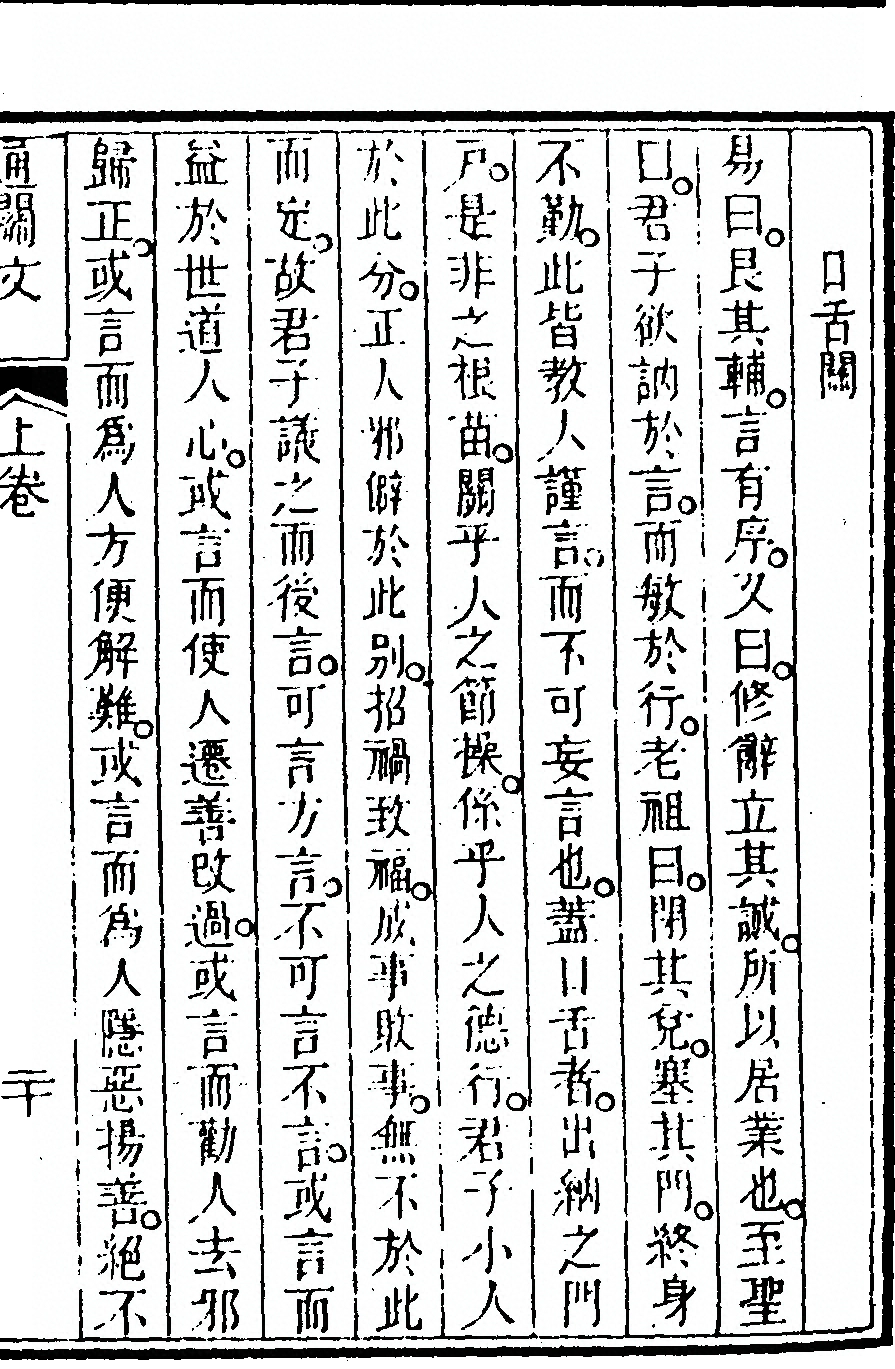 口舌關
易曰。艮其輔。言有序。又曰。修辭立其誠。所以居業也。至聖
曰。君子欲訥於言。而敏於行。老祖曰。閉其兌。塞其門。終身
不勤。此皆教人謹言。而不可妄言也。蓋口舌者。出納之門
戶。是非之根苗。關乎人之節操。係乎人之德行。君子小人
於此分。正人邪僻於此別。招禍致福。成事敗事。無不於此
而定。故君子議之而後言。可言方言。不可言不言。或言而
益於世道人心。或言而使人遷善改過。或言而勸人去邪
歸正。或言而爲人方便解難。或言而爲人隱惡揚善。絕不
通關文 上卷 二十